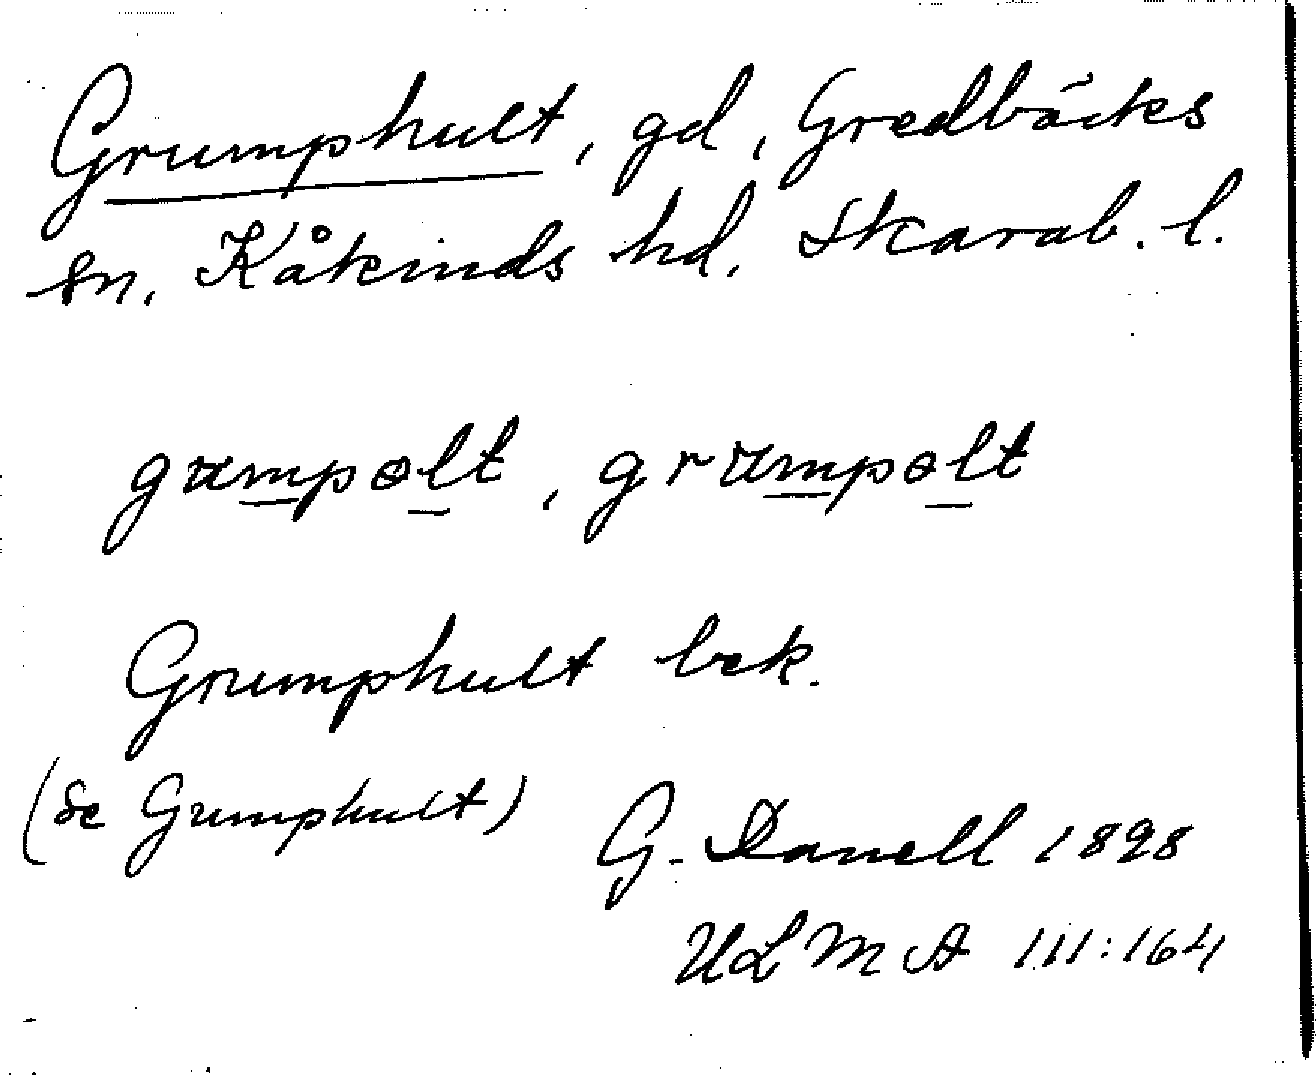 Grumphult, gd, Gredbäcks
sn, Kåkinds hd, Skarab. l.
grumpolt, grumpolt
Grumphult bek.
(se Grumphult)
G. Danell 1898
ULMA 111:164